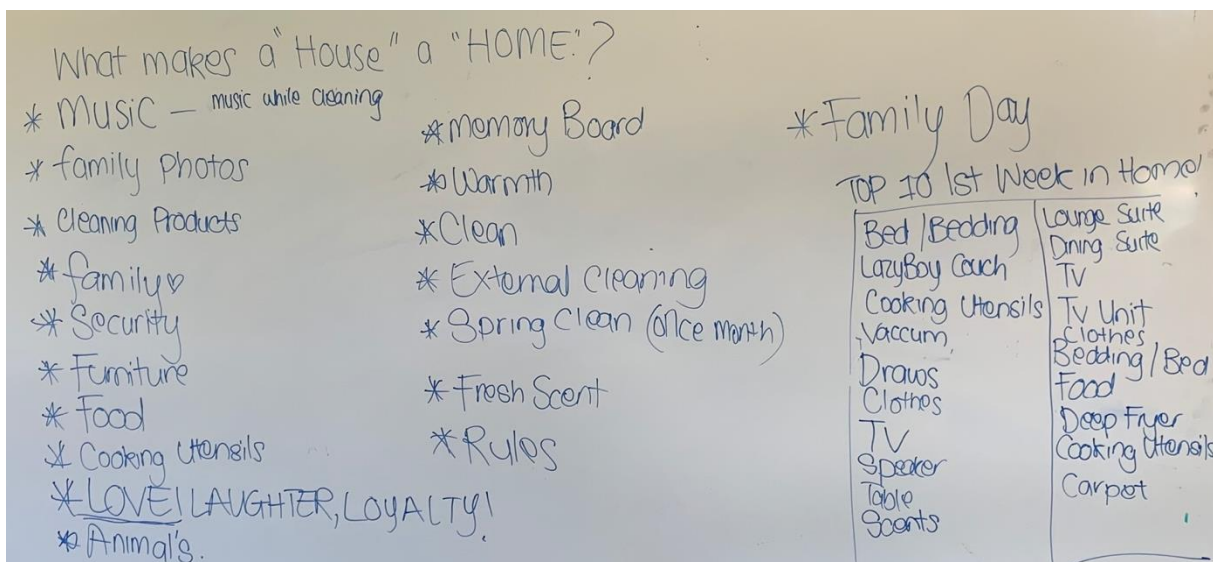 What makes a "House" a "HOME"?
* MUSIC – music while cleaning
* family photos
* Cleaning Products
* family♡
* Security
* Furniture
* Food
* Cooking Utensils
* LOVE! LAUGHTER, LOYALTY!
* Animal's.
* Memory Board
* Warmth
* Clean
* External Cleaning
* Spring Clean (once month)
* Fresh Scent
* Rules
* Family Day
TOP 10 1st Week in Home!
Bed / Bedding
LazyBoy Couch
Cooking Utensils
Vaccum
Draws
Clothes
TV
Speaker
Table
Scents
Lounge Suite
Dining Suite
TV
TV Unit
Clothes
Bedding / Bed
Food
Deep Fryer
Cooking Utensils
Carpet